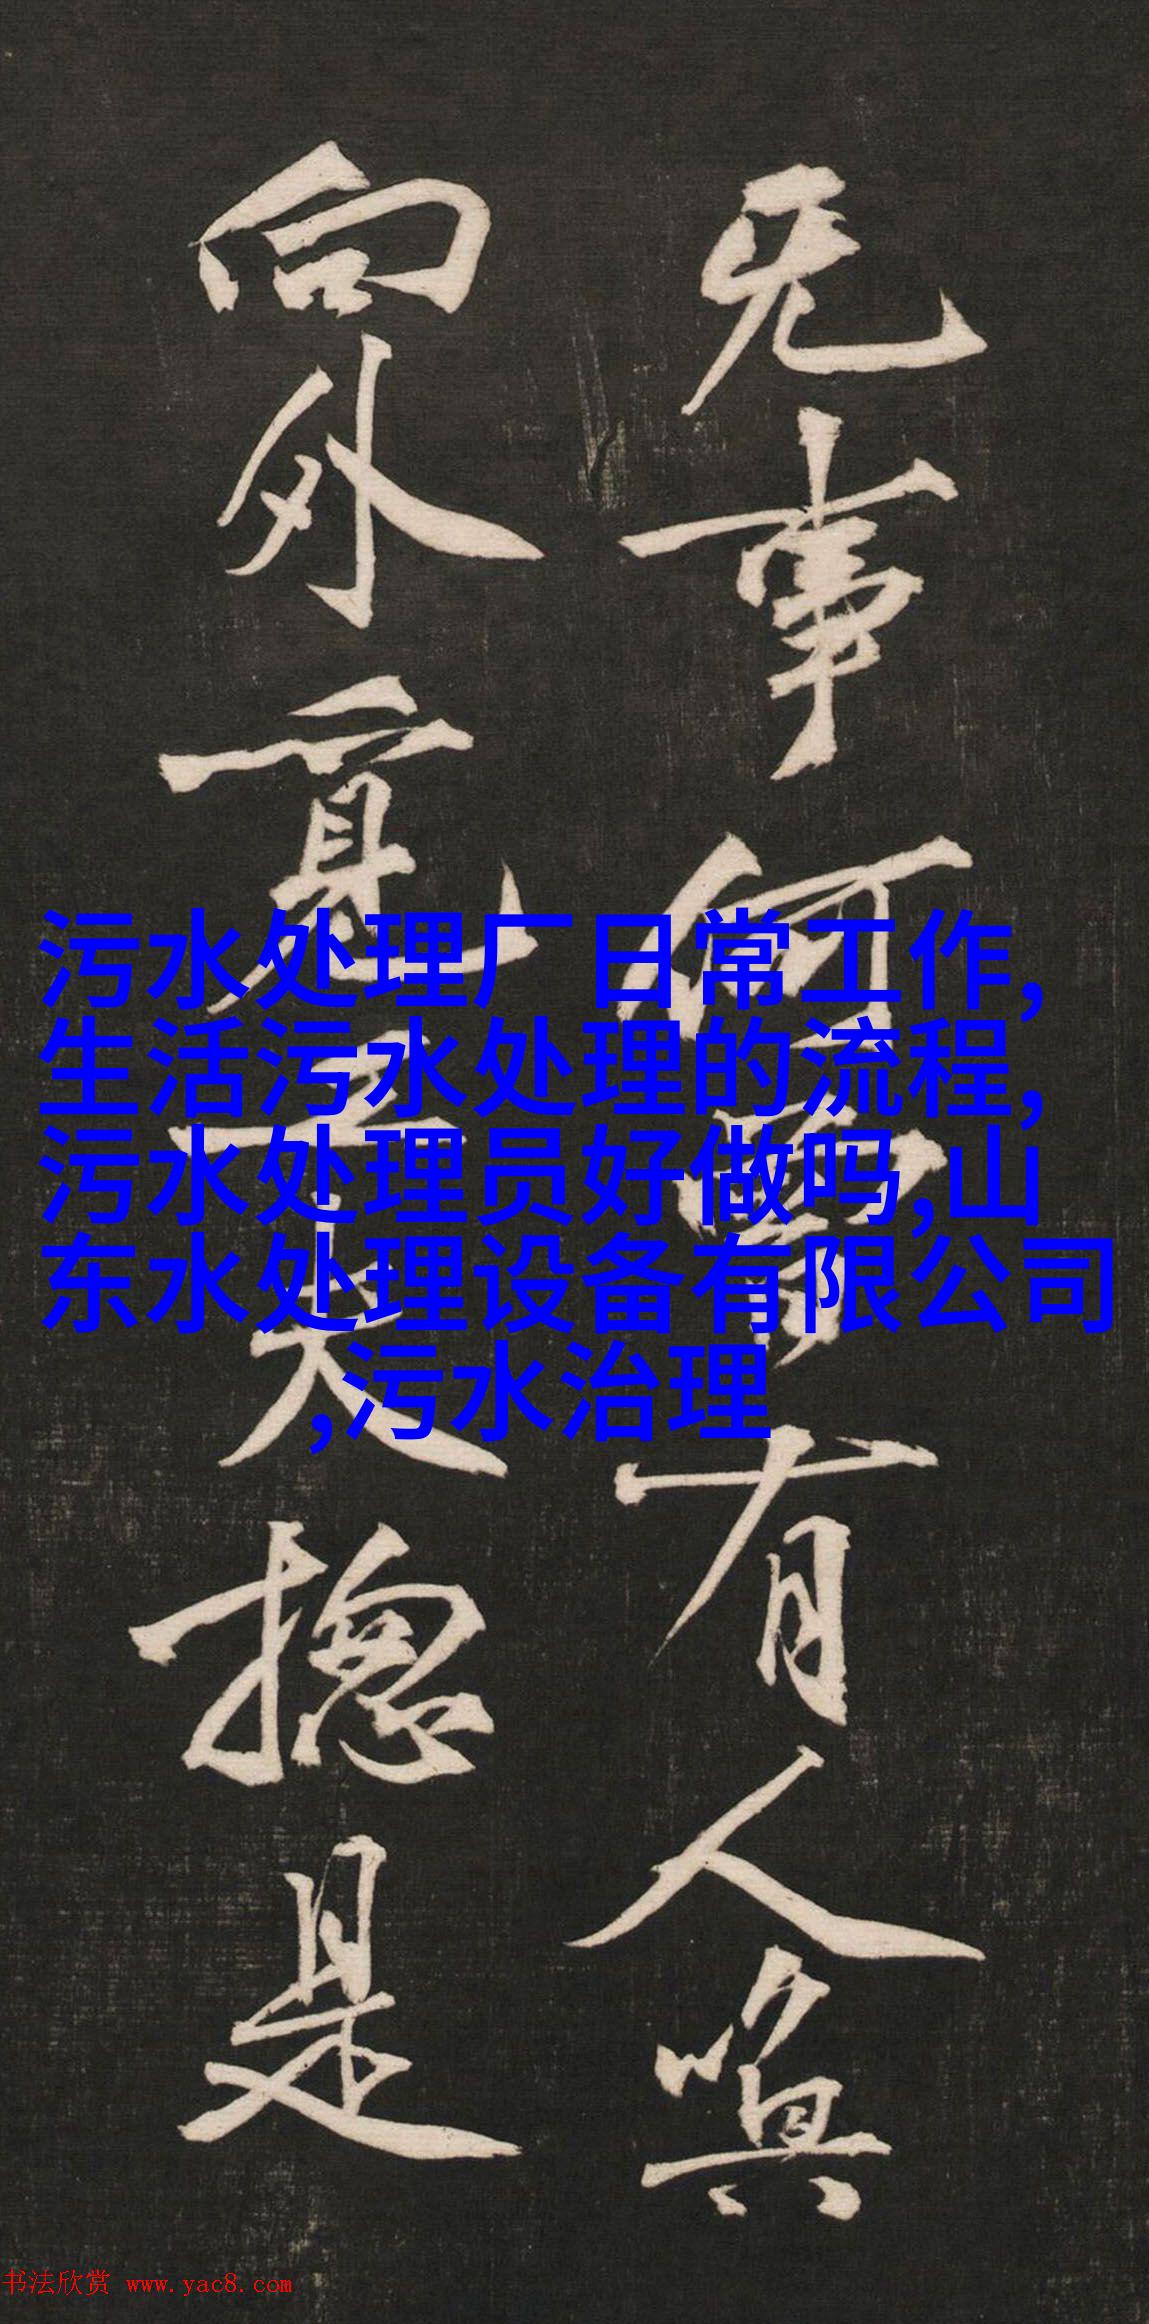 旡事何有人喚
向外覓工夫揔是
污水处理厂日常工作,
生活污水处理的流程,
污水处理员好做吗,山
东水处理设备有限公司
,污水治理
书法欣赏 www.yac8.com